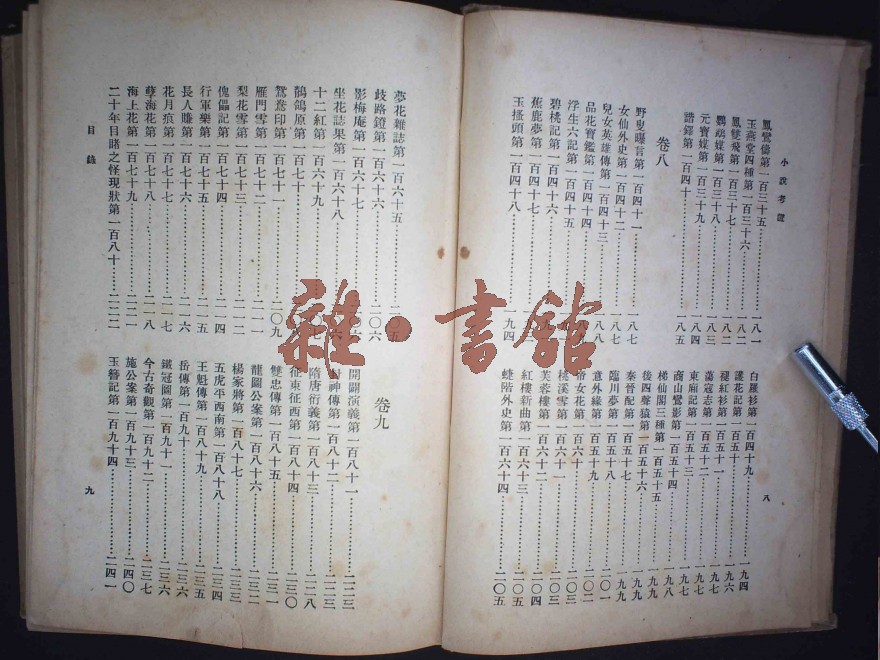 小說考證
鳳鸞儔第一百三十五……一八一
玉燕堂四種第一百三十六……一八二
鳳雙飛第一百三十七……一八二
鸚鵡媒第一百三十八……一八三
元寶媒第一百三十九……
諧鐸第一百四十……一八五
卷八
野叟曝言第一百四十一……一八七
女仙外史第一百四十二……一八七
兒女英雄傳第一百四十三……一八八
品花寶鑑第一百四十四……
浮生六記第一百四十五……
碧桃記第一百四十六……
蕉鹿夢第一百四十七……
玉搔頭第一百四十八……一九四
白羅衫第一百四十九……一九四
護花記第一百五十……一九六
褪紅衫第一百五十一……一九七
蕩寇志第一百五十二……一九七
東廂記第一百五十三……一九七
商山鸞影第一百五十四……一九八
梯仙閣三種第一百五十五……一九八
後四聲猿第一百五十六……一九九
秦晉配第一百五十七……一九九
臨川夢第一百五十八……二〇一
意外緣第一百五十九……二〇二
帝女花第一百六十……二〇三
桃溪雪第一百六十一……二〇四
芙蓉樓第一百六十二……二〇四
紅樓新曲第一百六十三……二〇五
蟫階外史第一百六十四……二〇五
八
夢花雜誌第一百六十五……二〇五
歧路鐙第一百六十六……二〇六
影梅庵第一百六十七……二〇六
坐花誌果第一百六十八……
十二紅第一百六十九……
鶺鴒原第一百七十……
鴛鴦印第一百七十一……二〇九
雁門雪第一百七十二……二一一
梨花雪第一百七十三……二一二
傀儡記第一百七十四……二一四
行軍樂第一百七十五……二一五
長人賺第一百七十六……二一六
花月痕第一百七十七……二一七
孽海花第一百七十八……二一八
海上花第一百七十九……二二一
二十年目睹之怪現狀第一百八十……二二二
卷九
開闢演義第一百八十一……二二三
封神傳第一百八十二……二二三
隋唐衍義第一百八十三……二二八
征東征西第一百八十四……二三〇
雙忠傳第一百八十五……二三一
龍圖公案第一百八十六……二三二
楊家將第一百八十七……二三三
五虎平西南第一百八十八……二三四
王魁傳第一百八十九……二三五
岳傳第一百九十……二三六
鐵冠圖第一百九十一……二三六
今古奇觀第一百九十二……二三七
施公案第一百九十三……二四〇
玉簪記第一百九十四……二四一
目錄
九
雜·書館